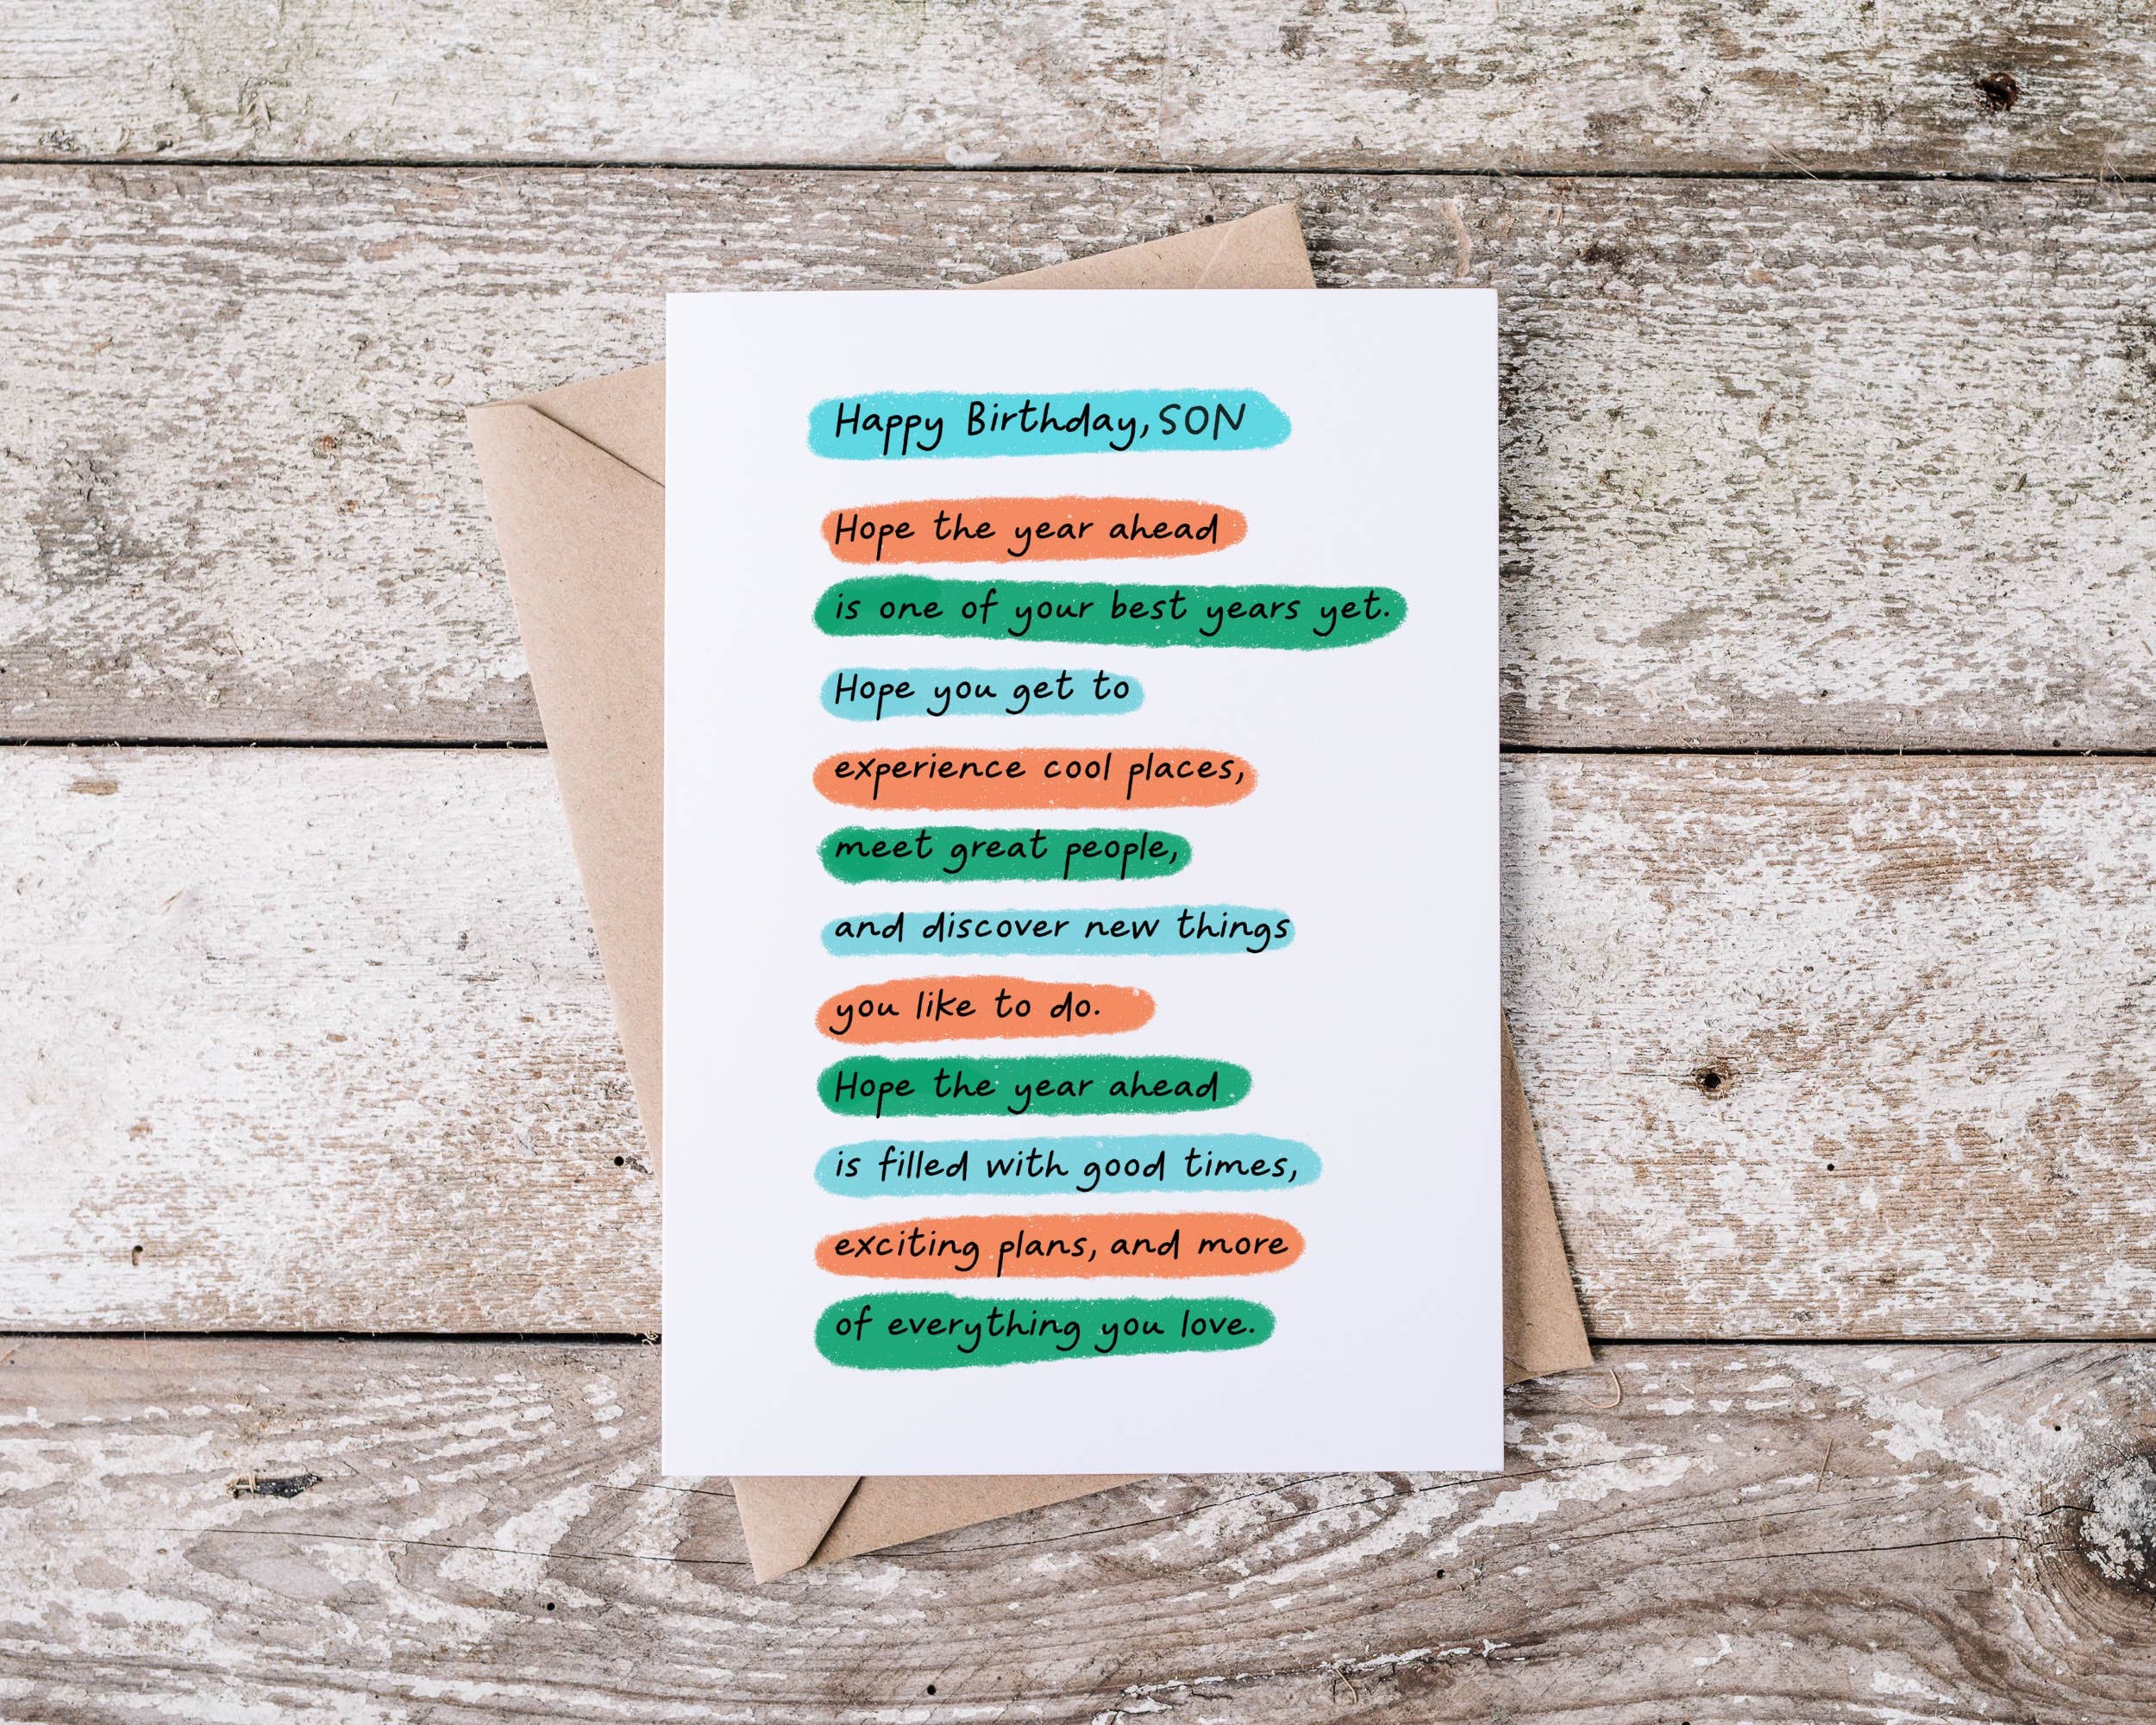 Happy Birthday, SON
Hope the year ahead
is one of your best years yet.
Hope you get to
experience cool places,
meet great people,
and discover new things
you like to do.
Hope the year ahead
is filled with good times,
exciting plans, and more
of everything you love.